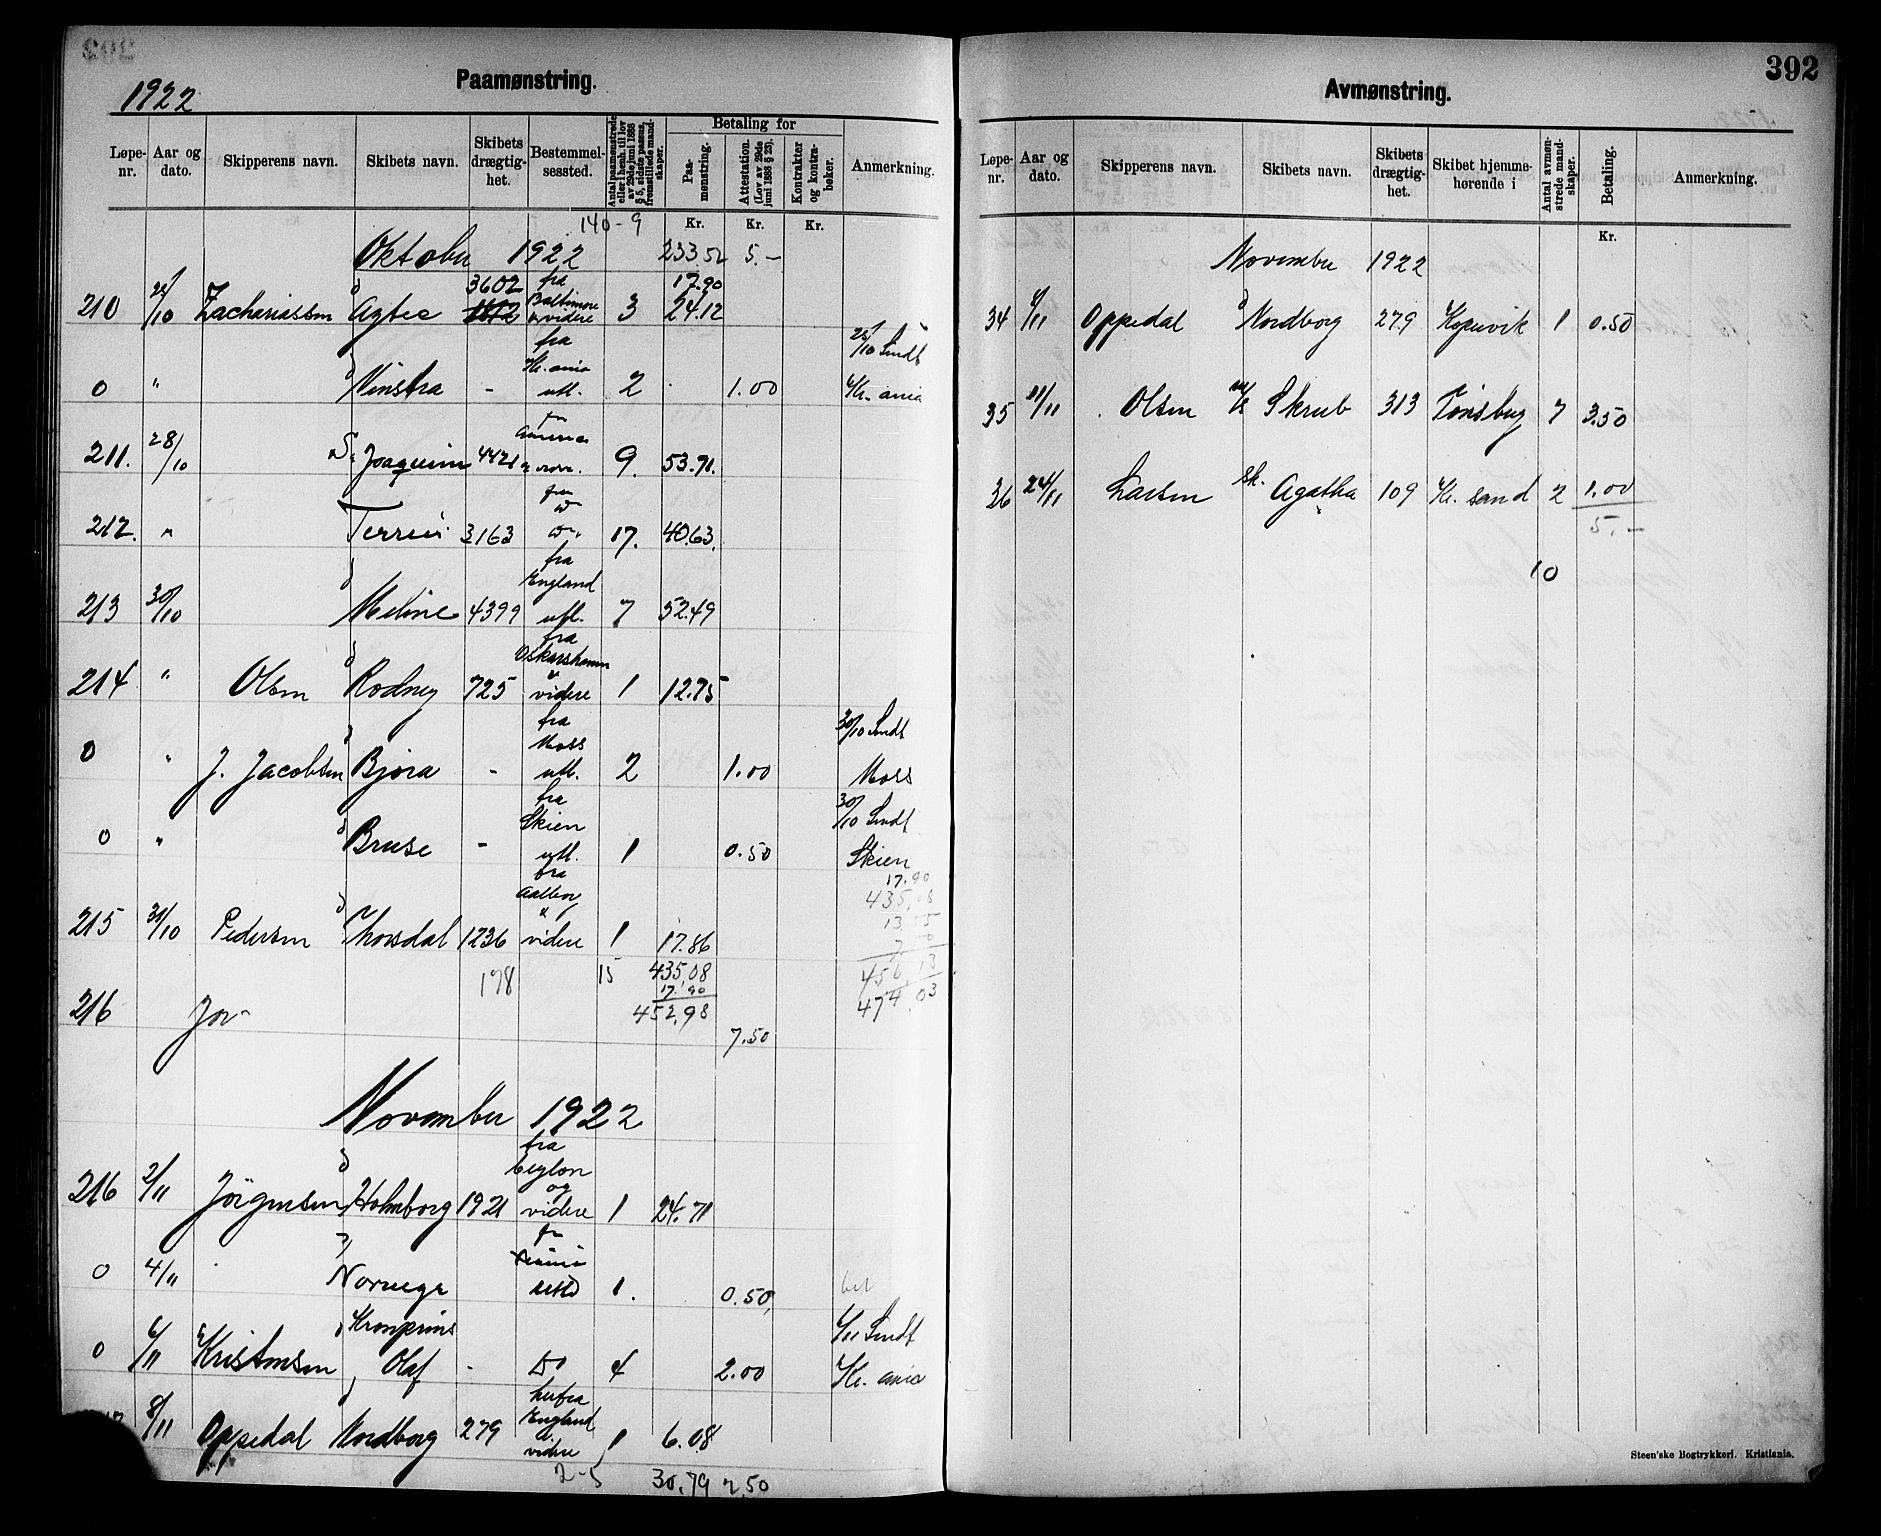 1922
Paamønstring.
Løpe-nr. Aar og dato. Skipperens navn. Skibets navn. Skibets drægtig-het. Bestemmel-sessted. Antal paamønstrede eller i henh. til lov av 29de juni 1888 § 5, sidste passus, fremstillede mand-skaper. Betaling for Paa-mønstring. Attestation. (Lov av 29de juni 1888 § 23). Kontrakter og kontra-bøker. Anmerkning.
140-9 Kr. Kr. Kr.
Oktober 1922 233.52 5.-
210 /10 Zachariassen Agtea 3602 fra Baltimore & videre 3 17.90 24.12
0 " Vinstra - fra Kr. ania utl. 2 1.00 /10 Sendt Kr. ania
211. 28/10 Joaquim 4421 9. 53.71.
212. " Terrier 3163 fra 17. 40.63.
213 30/10 Meline 4399 fra England utl. 7 52.49
214 " Olsen Rodney 725 fra Oskarshamn & videre 1 12.75
0 " J. Jacobsen Bjora - fra Moss utl. 2 1.00 30/10 Sendt Moss
0 " Bruse - fra Skien utl. 1 0.50 30/10 Sendt Skien
17.90
435,08
215 31/10 Pedersen Thorsdal 1236 fra Aalborg & videre 1 17.86
198 15 435,08
17.90
456,13
216 452,98 474,03
7.50
November 1922
216 2/11 Jörgensen Holmborg 1921 fra Ceylon og videre 1 24.71
0 4/11 Norvega 1. 0.50,
0 6/11 Kristensen Kronprins Olaf - Do 4 2.00 6/11 Sendt Kr. ania
8/11 Oppedal Nordborg 279 herfra England & videre 1 6.08
2-5 30,79 2,50
392
Avmønstring.
Løpe-nr. Aar og dato. Skipperens navn. Skibets navn. Skibets drægtig-het. Skibet hjemme-hørende i Antal avmøn-strede mand-skaper. Betaling. Anmerkning.
Kr.
November 1922
34 6/11 Oppedal Nordborg 279 Kopervik 1 0.50
35 11/11 Olsen m/s Skrub 313 Tønsberg 7 3.50
36 24/11 Larsen sk. Agatha 109 Kr. sand 2 1.00
5,-
10
Steen'ske Bogtrykkeri. Kristiania.